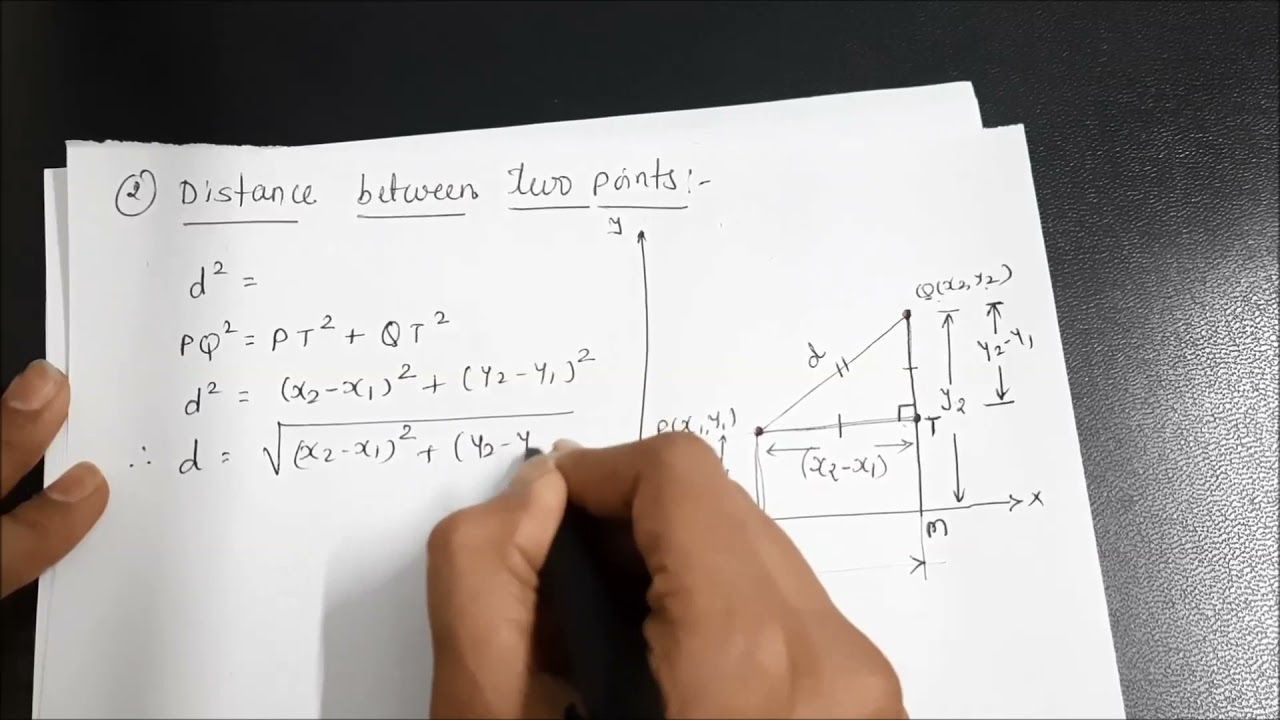 ② Distance between two points:-
d² =
PQ² = PT² + QT²
d² = (x₂-x₁)² + (y₂-y₁)²
∴ d = √(x₂-x₁)² + (y₂-y
y
Q(x₂,y₂)
d
y₂-y₁
y₂
P(x₁,y₁)
T
(x₂-x₁)
x
m